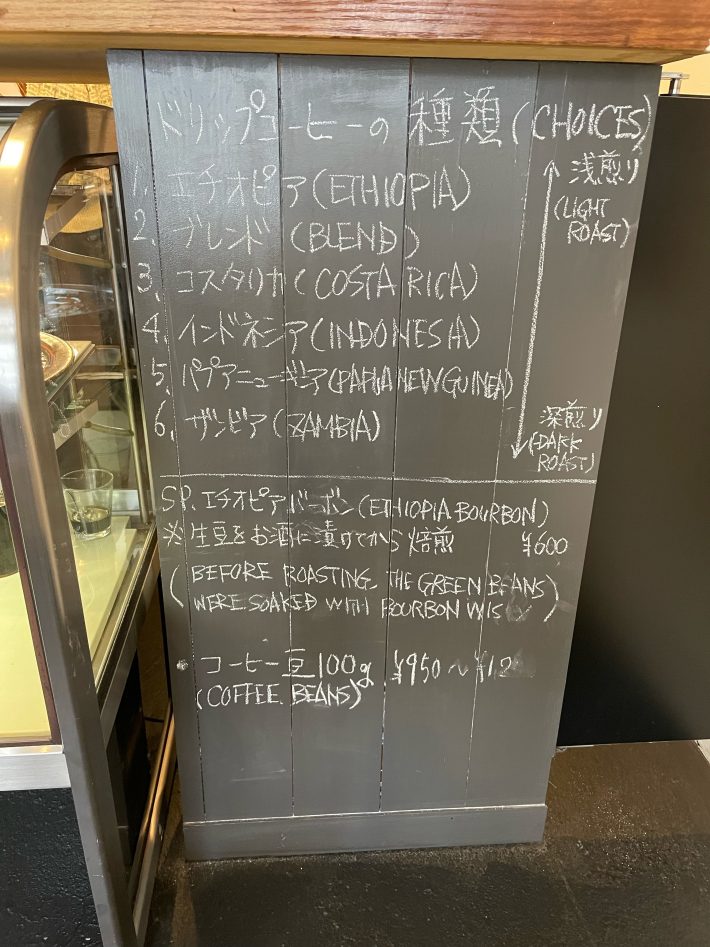 ドリップコーヒーの種類 (CHOICES)
1. エチオピア (ETHIOPIA)
2. ブレンド (BLEND)
3. コスタリカ (COSTA RICA)
4. インドネシア (INDONESIA)
5. パプアニューギニア (PAPUA NEW GUINEA)
6. ザンビア (ZAMBIA)
浅煎り
(LIGHT
ROAST)
深煎り
(DARK
ROAST)
SP. エチオピアバーボン (ETHIOPIA BOURBON)
※生豆をお酒に漬けてから焙煎 ¥600
(BEFORE ROASTING, THE GREEN BEANS
WERE SOAKED WITH BOURBON)
コーヒー豆100g ¥950〜
(COFFEE BEANS)